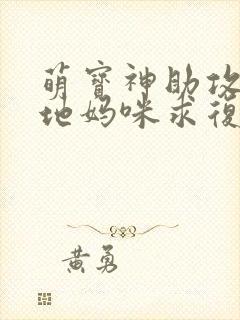 萌寶神助攻
地媽咪求復
黃勇